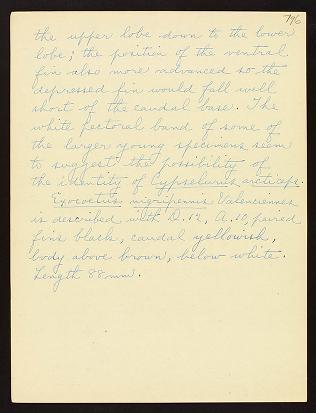 796
the upper lobe down to the lower
lobe; the position of the ventral
fin also more advanced so the
depressed fin would fall well
short of the caudal base. The
white pectoral band of some of
the larger young specimens seem
to suggest the possibility of
the identity of Cypselurus arcticeps.
Exocoetus nigripennis Valenciennes
is described with D. 12, A. 10, paired
fins black, caudal yellowish,
body above brown, below white.
Length 88 mm.